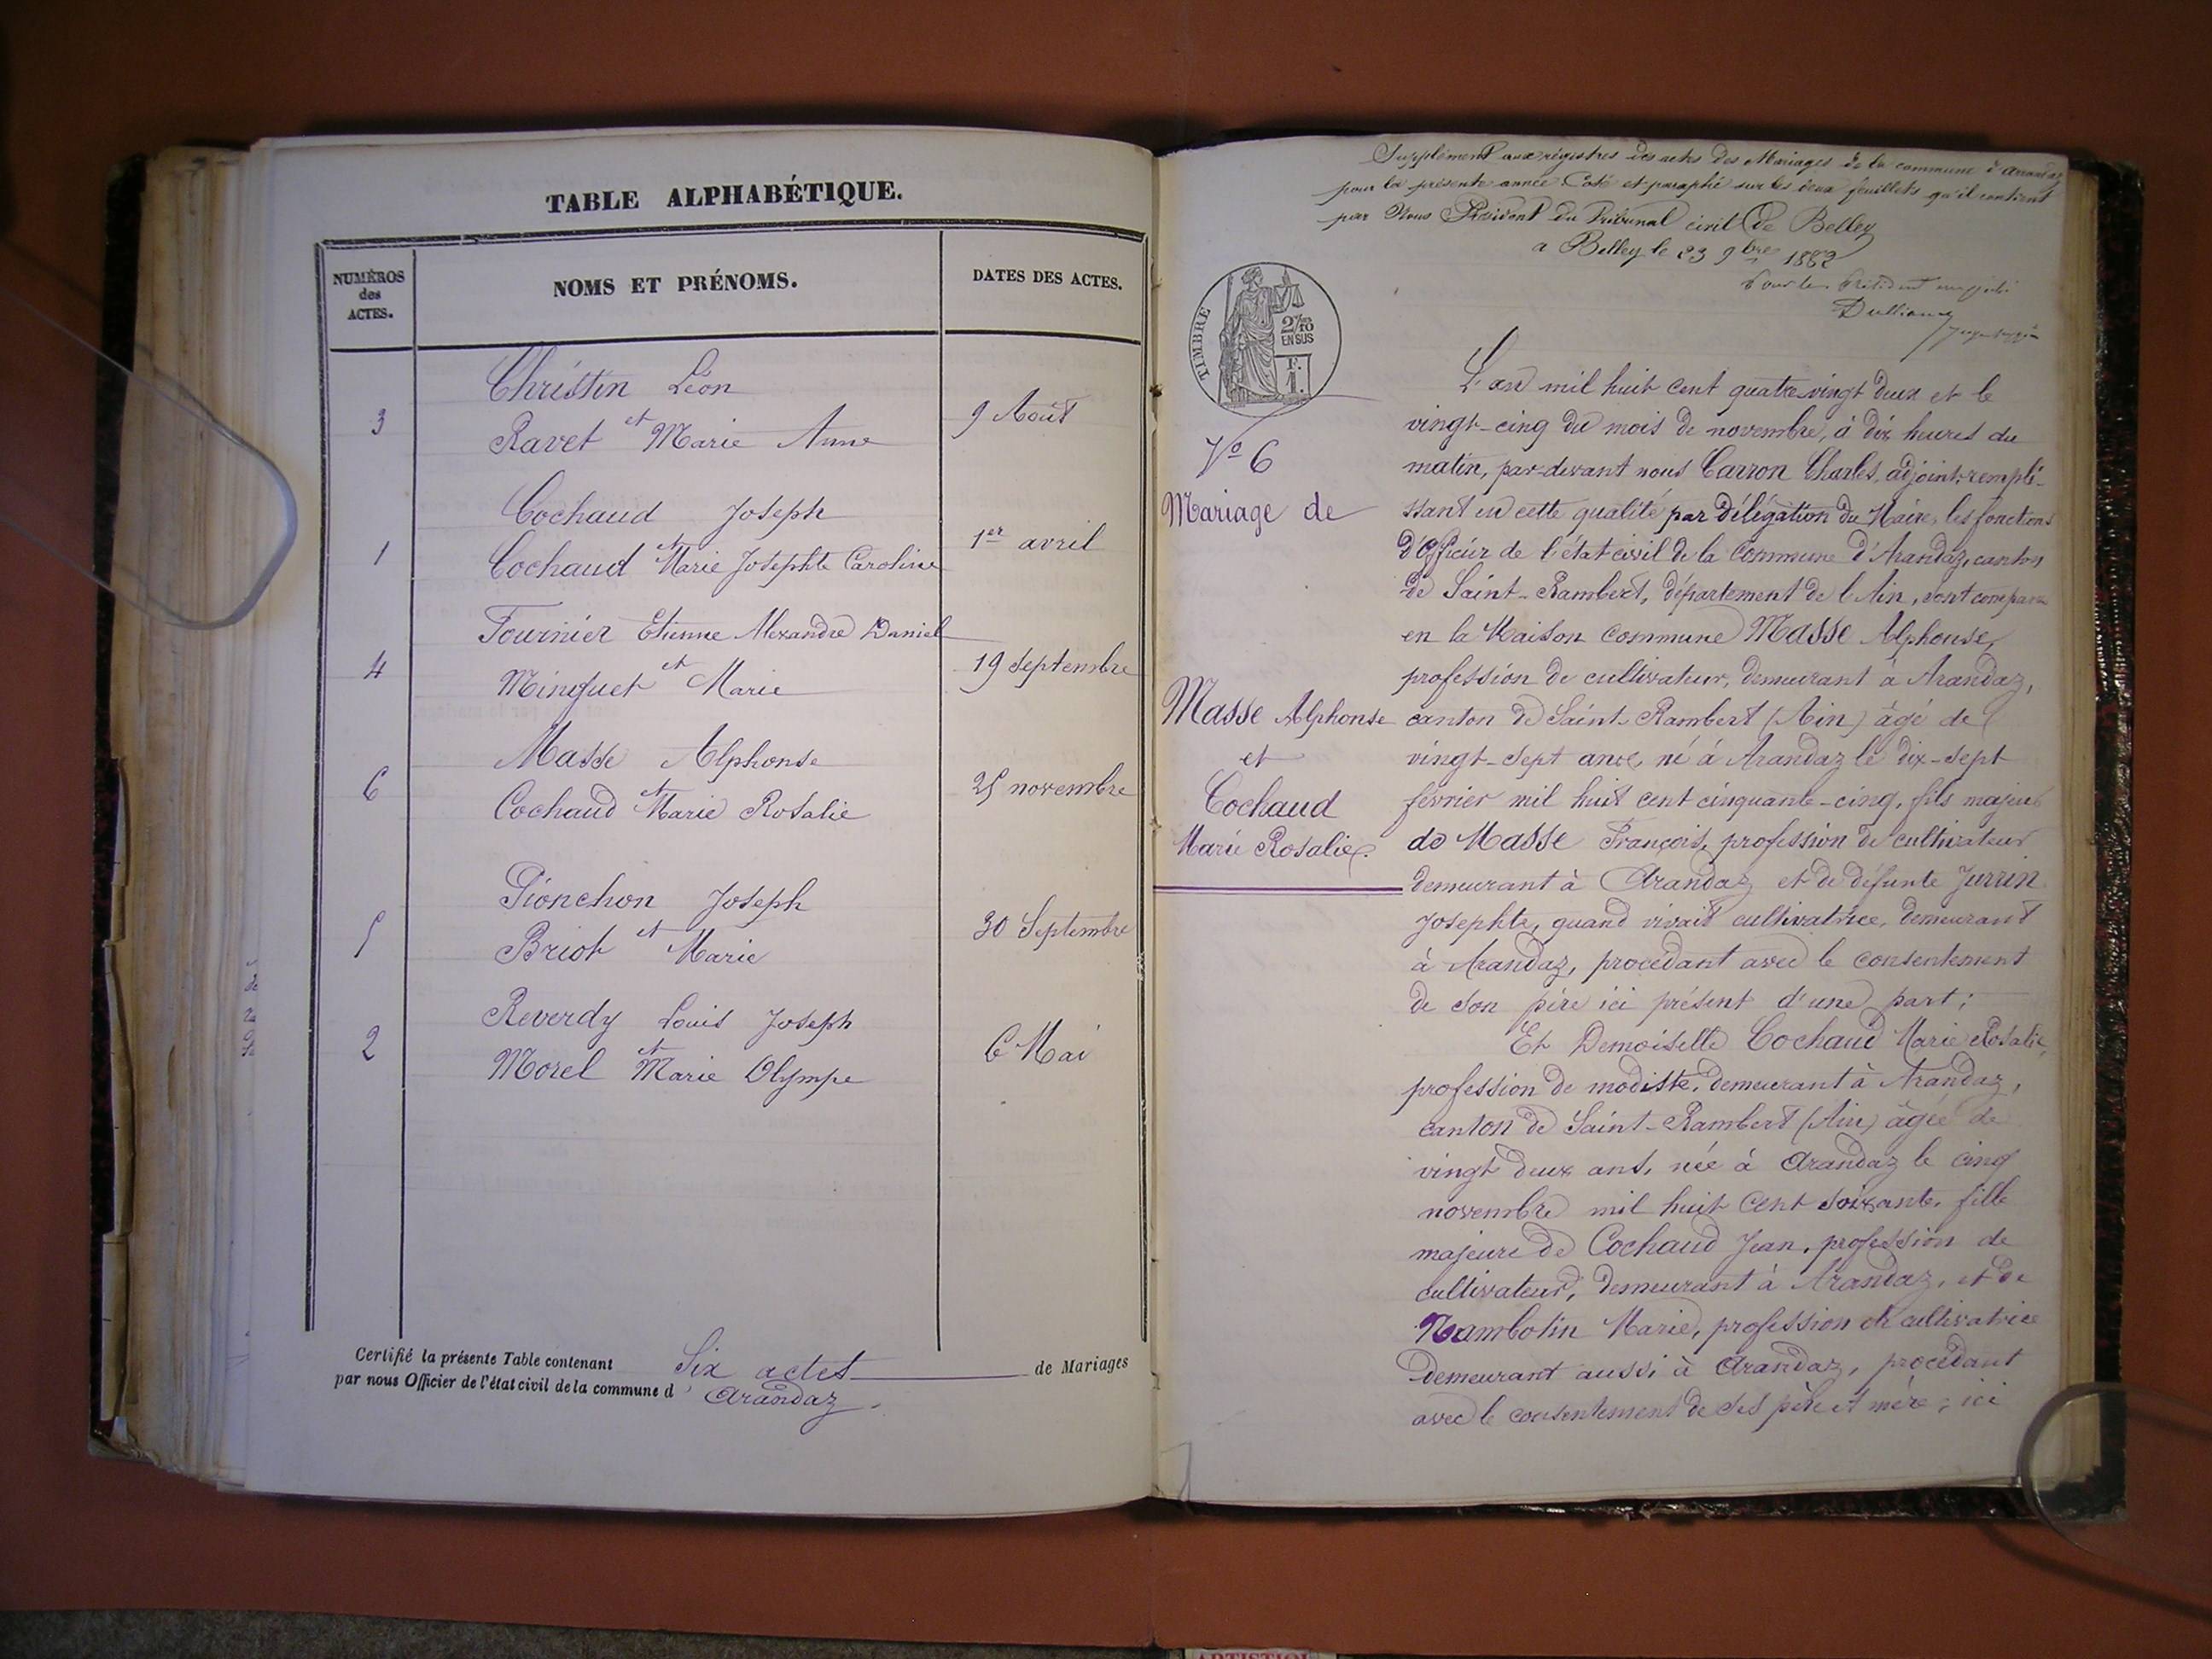 TABLE ALPHABÉTIQUE.
NUMÉROS
des
ACTES.
NOMS ET PRÉNOMS.
DATES DES ACTES.
Christin Léon
3 et 9 Août
Ravet Marie Anne
Cochaud Joseph
1 et 1er avril
Cochaud Marie Josephte Caroline
Fournier Etienne Alexandre Daniel
4 et 19 Septembre
Minguet Marie
Masse Alphonse
6 et 25 novembre
Cochaud Marie Rosalie
Pionchon Joseph
5 et 30 Septembre
Briot Marie
Reverdy Louis Joseph
2 et 6 Mai
Morel Marie Olympe
Certifié la présente Table contenant Six actes de Mariages
par nous Officier de l'état civil de la commune d' Arandaz.
Supplément aux régistres des actes des Mariages de la commune d'Arandaz
pour la présente année Coté et paraphé sur les deux feuillets qu'il contient
par Nous Président du Tribunal civil de Belley
a Belley le 23 9bre 1882
Pour le Président empêché
TIMBRE
2/10
EN SUS
F.
1.
No 6
Mariage de
Masse Alphonse
et
Cochaud
Marie Rosalie.
L'an mil huit cent quatre-vingt deux et le
vingt-cinq du mois de novembre, à dix heures du
matin, par-devant nous Carron Charles, adjoint, rempli-
ssant en cette qualité par délégation du Maire, les fonctions
d'Officier de l'état civil de la Commune d'Arandaz, canton
de Saint-Rambert, département de l'Ain, sont comparu
en la Maison commune Masse Alphonse,
profession de cultivateur, demeurant à Arandaz,
canton de Saint-Rambert (Ain) âgé de
vingt-sept ans, né à Arandaz le dix-sept
février mil huit cent cinquante-cinq, fils majeur
de Masse François, profession de cultivateur
demeurant à Arandaz et de défunte Jurrin
Josephte, quand vivait cultivatrice, demeurant
à Arandaz, procédant avec le consentement
de son père ici présent d'une part;
Et Demoiselle Cochaud Marie Rosalie,
profession de modiste, demeurant à Arandaz,
canton de Saint-Rambert (Ain) âgée de
vingt deux ans, née à Arandaz le cinq
novembre mil huit cent soixante, fille
majeure de Cochaud Jean, profession de
cultivateur, demeurant à Arandaz, et de
Nambotin Marie, profession de cultivatrice
demeurant aussi à Arandaz, procédant
avec le consentement de ses père et mère, ici